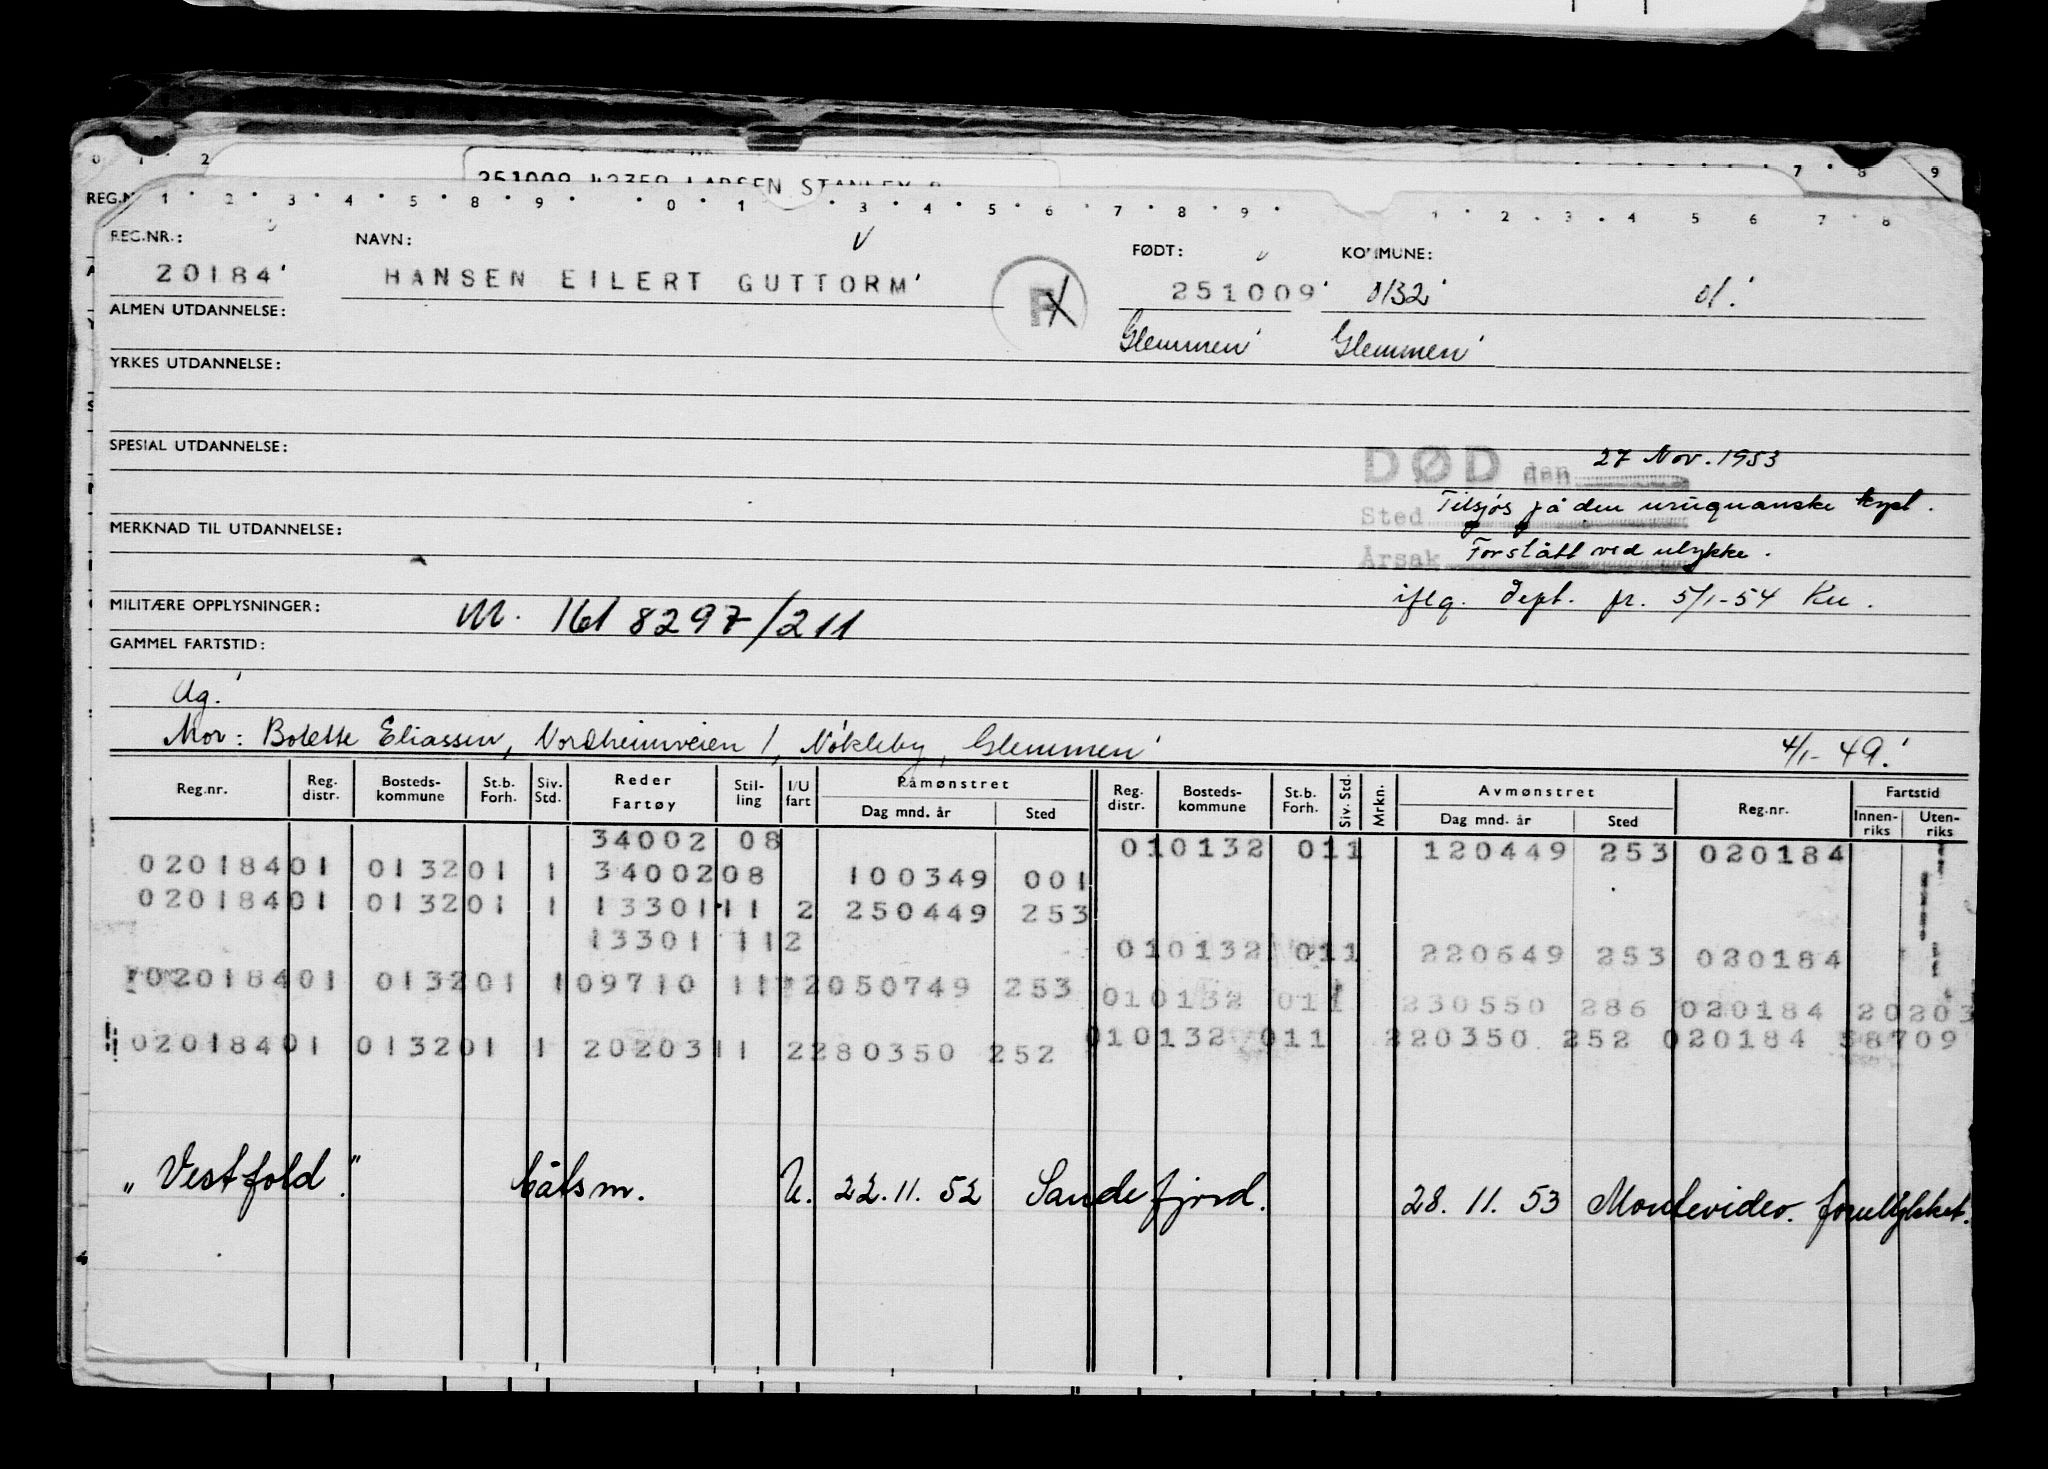 0 1 · 2 7 · 8 9
251009 42350 LARSEN STANLEY
REG.N 1 · 2 · 3 · 4 · 5 · 8 · 9 · 0 · 1 · 3 · 4 · 5 · 6 · 7 · 8 · 9 · 1 · 2 · 3 · 4 5 6 7 · 8
REG.NR.: NAVN: FØDT: KOMMUNE:
20184 HANSEN EILERT GUTTORM 251009 0132 01.
ALMEN UTDANNELSE: Glemmen Glemmen
YRKES UTDANNELSE:
SPESIAL UTDANNELSE: DØD den 27 Nov. 1953
Sted Tilsjøs på den uruguanske kyst.
MERKNAD TIL UTDANNELSE:
Årsak Forslått ved ulykke.
MILITÆRE OPPLYSNINGER: M. 161 8297/211 iflg. Dept. fr. 5/1-54 Ku.
GAMMEL FARTSTID:
Ug.
Mor: Bolette Eliassen, Nordheimveien 1, Nökleby, Glemmen 4/1-49.
Reg.nr. Reg. distr. Bosteds-kommune St.b. Forh. Siv. Std. Reder Fartøy Stil-ling I/U fart Påmønstret Dag mnd. år Sted Reg. distr. Bosteds-kommune St.b. Forh. Siv. Std. Mrkn. Avmønstret Dag mnd. år Sted Reg.nr. Fartstid Innen-riks Uten-riks
34002 08 010132 011 120449 253 020184
02018401 013201 1 3400208 100349 001
02018401 013201 1 1330111 2 250449 253
13301 112 010132 011 220649 253 020184
02018401 013201 109710 11 2050749 253 010132 011 230550 286 020184 20203
02018401 013201 1 2020311 2280350 252 010132 011 220350 252 020184 58709
„Vestfold." båtsm. U. 22.11.52 Sandefjord. 28.11.53 Montevideo. forullykket.